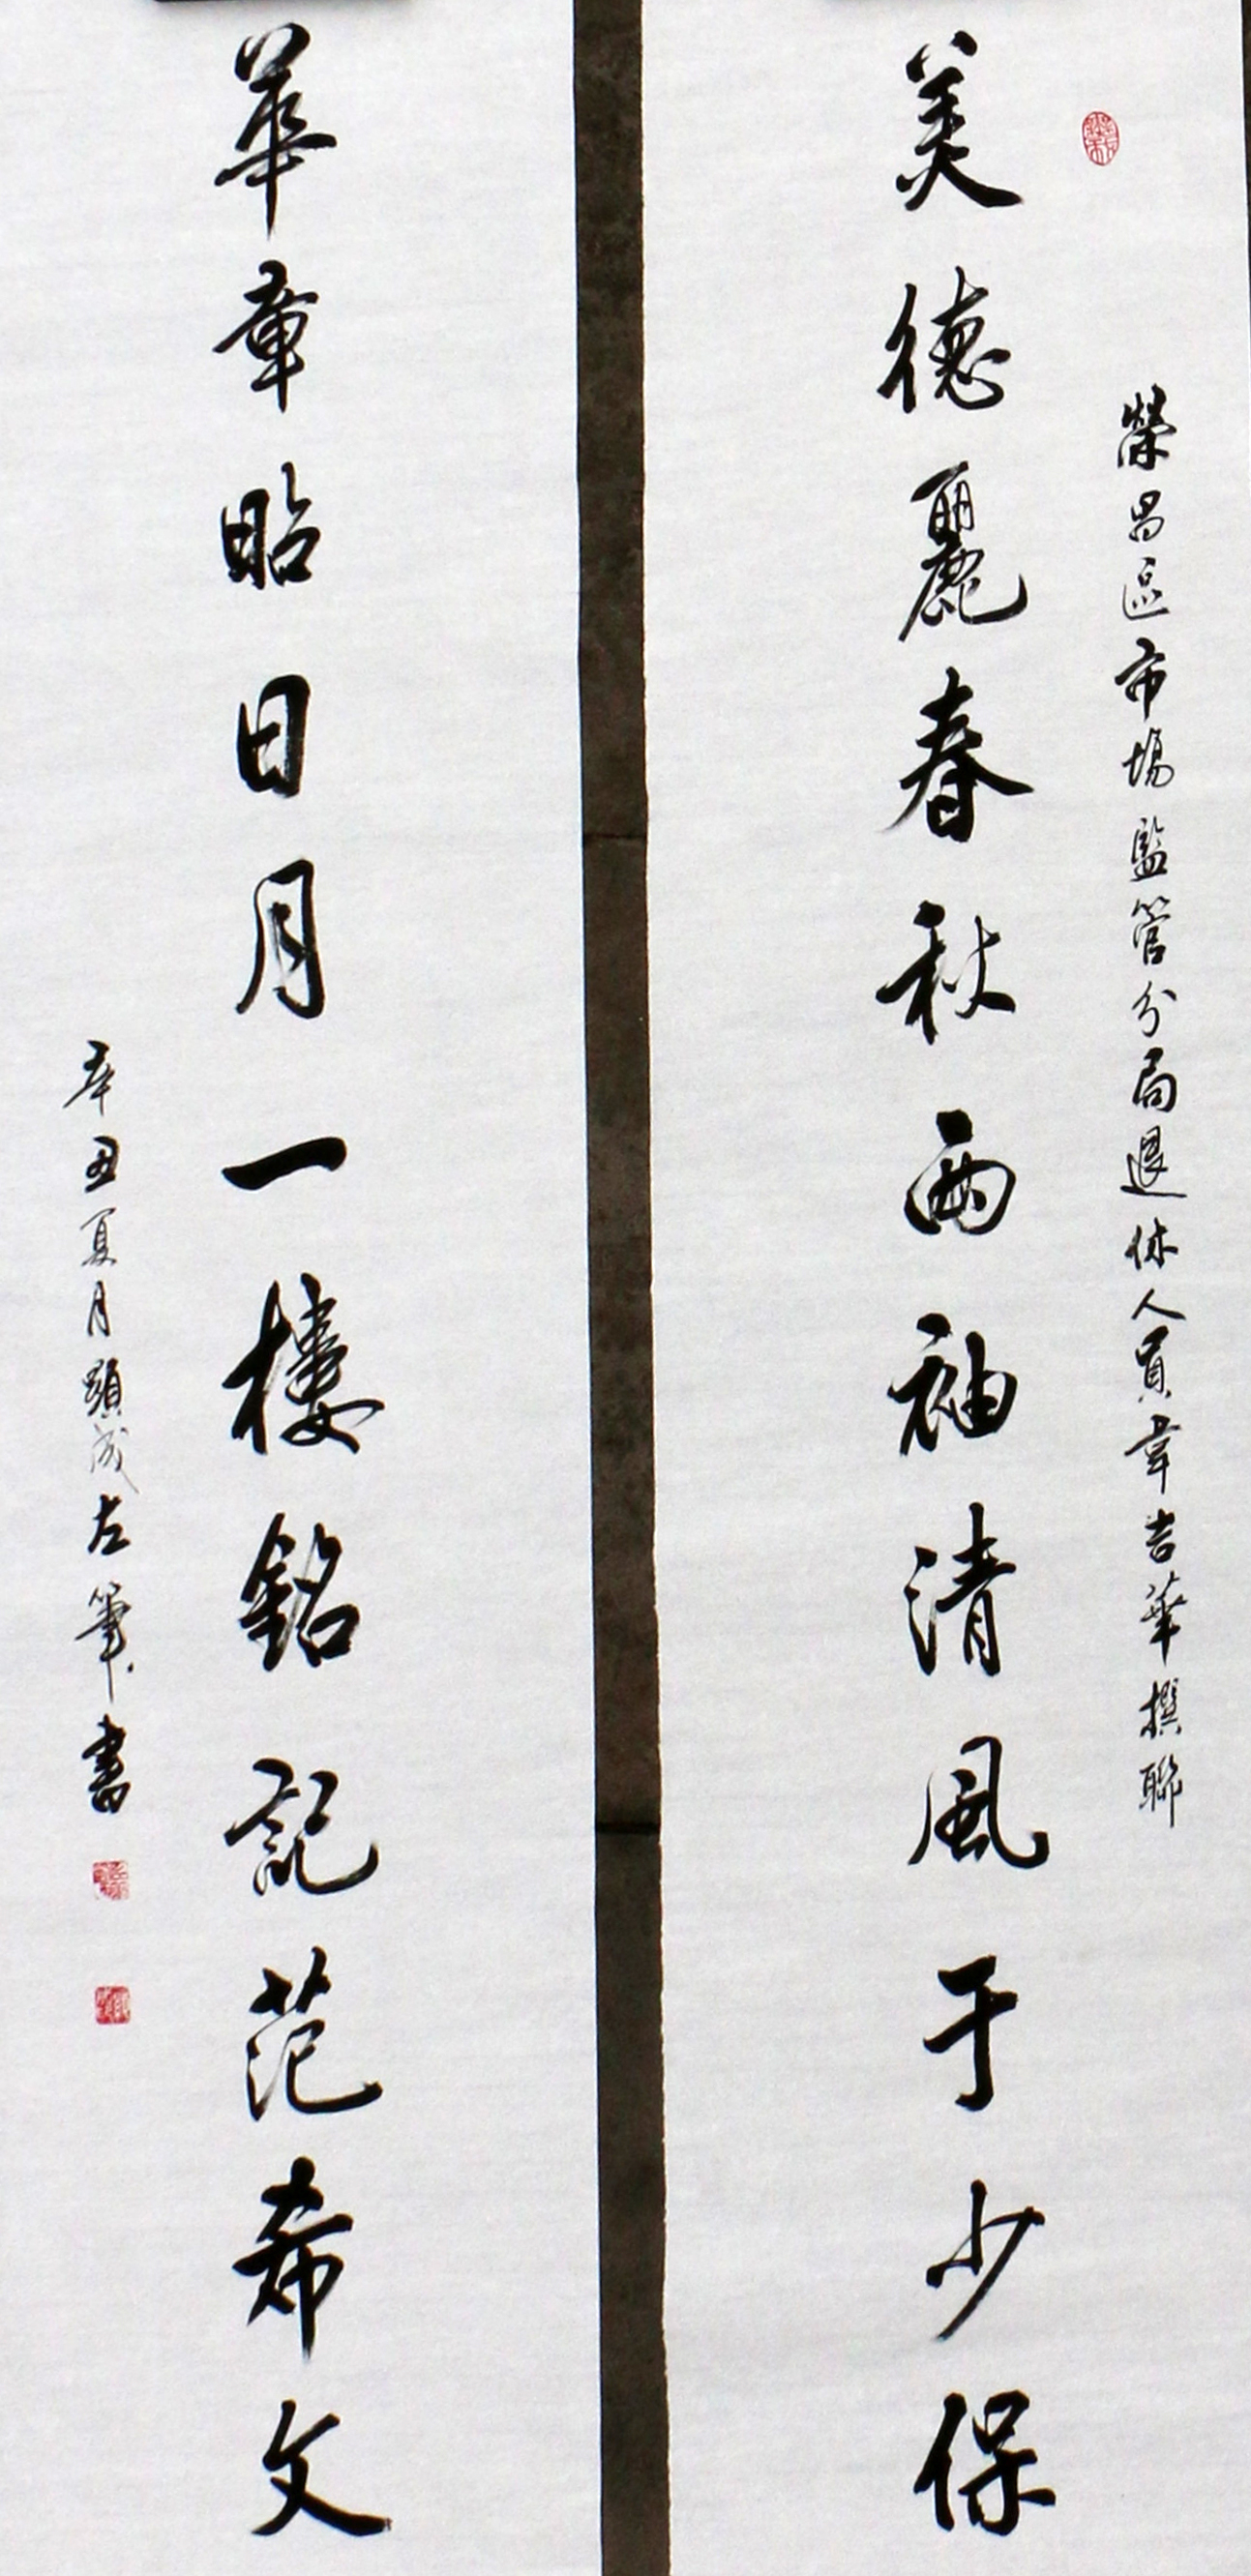 榮昌區市場監管分局退休人員韋吉華撰聯
美德麗春秋兩袖清風于少保
華章昭日月一樓銘記范希文
辛丑夏月顯成左筆書